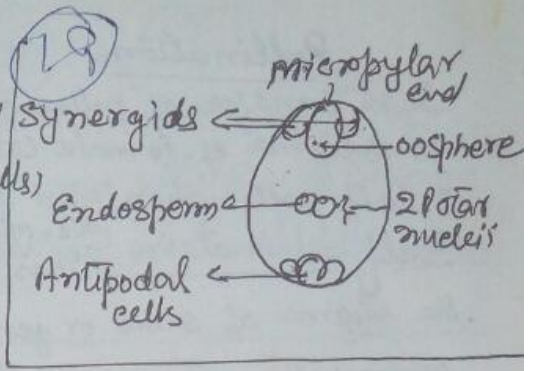 29
micropylar
end
Synergids
oosphere
ds)
Endosperm
2 Polar
nucleii
Antipodal
cells